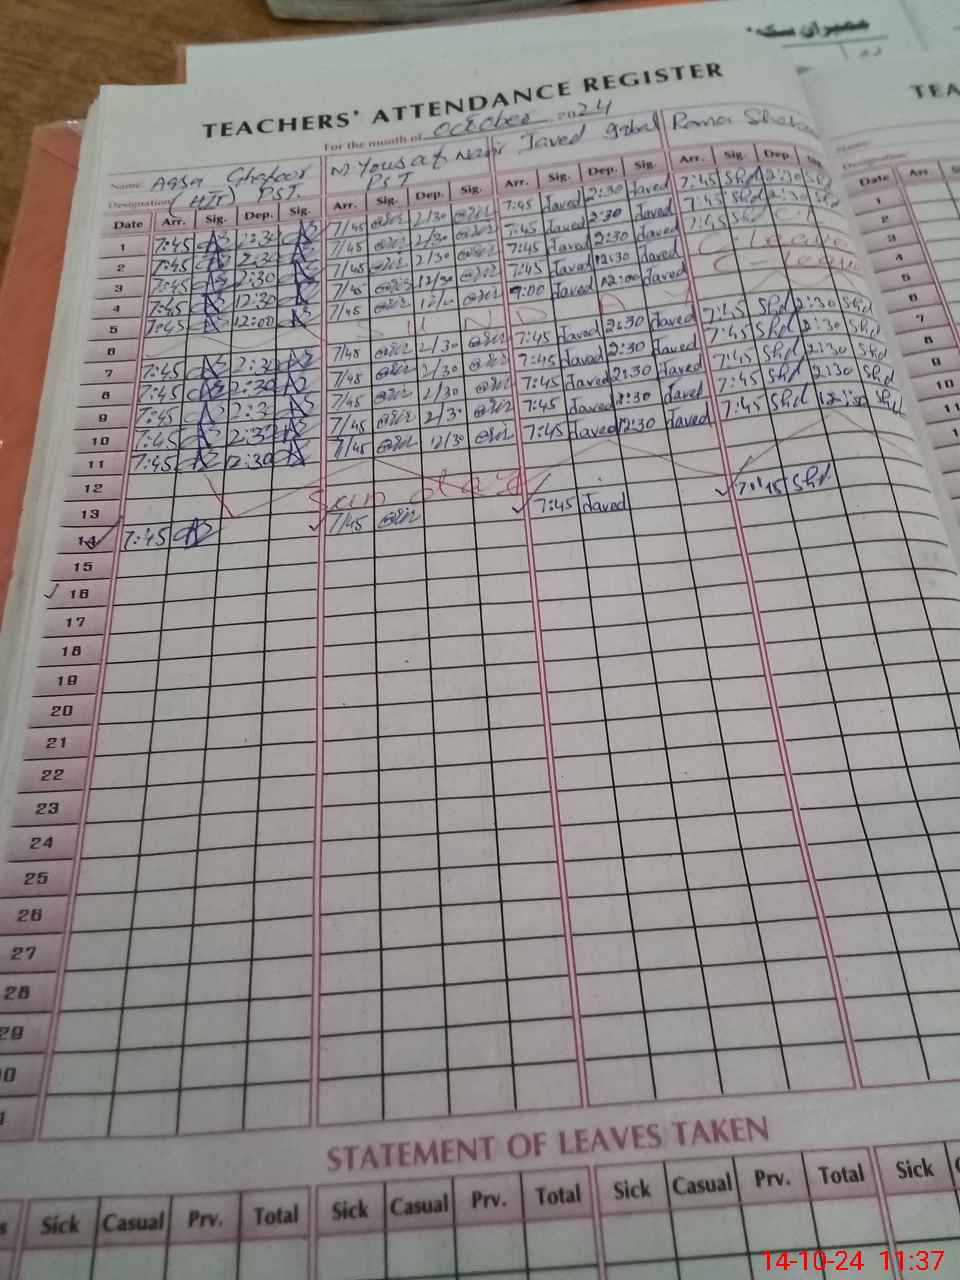 ممبران سٹ
TEACHERS' ATTENDANCE REGISTER
TEA
For the month of October 2024
Name Aqsa Ghafoor M Yousaf Nasir Javed Iqbal Roma
Designation (HT) PST. PST
Date Arr. Sig. Dep. Sig. Arr. Sig. Dep. Sig. Arr. Sig. Dep. Sig. Arr. Sig. Dep. Date Arr.
1 7:45 2:30 7/45 2/30 7:45 Javed 2:30 Javed 7:45 Shd 2:30 Shd
2 7:45 2:30 7/45 2/30 7:45 Javed 2:30 Javed 7:45 Shd 2:30 Shd
3 7:45 2:30 7/45 2/30 7:45 Javed 2:30 Javed 7:45 Shd C-Leave
4 7:45 12:30 7/45 12/30 7:45 Javed 12:30 Javed C-Leave
5 7:45 12:00 7/45 Javed 12:00 Javed
6 SUNDAY
7 7:45 2:30 7/45 2/30 7:45 Javed 2:30 Javed 7:45 Shd 2:30 Shd
8 7:45 2:30 7/45 2/30 7:45 Javed 2:30 Javed 7:45 Shd 2:30 Shd
9 7:45 2:30 7/45 2/30 7:45 Javed 2:30 Javed 7:45 Shd 2:30 Shd
10 7:45 2:30 7/45 2/30 7:45 Javed 2:30 Javed 7:45 Shd 2:30 Shd
11 7:45 12:30 7/45 12/30 7:45 Javed 12:30 Javed 7:45 Shd 12:30 Shd
12
13 Sunday
14 7:45 7/45 7:45 Javed 7:45 Shd
15
16
17
18
19
20
21
22
23
24
25
26
27
28
29
STATEMENT OF LEAVES TAKEN
Sick Casual Prv. Total Sick Casual Prv. Total Sick Casual Prv. Total Sick
1
2
3
4
5
6
7
8
9
10
11
14-10-24 11:37